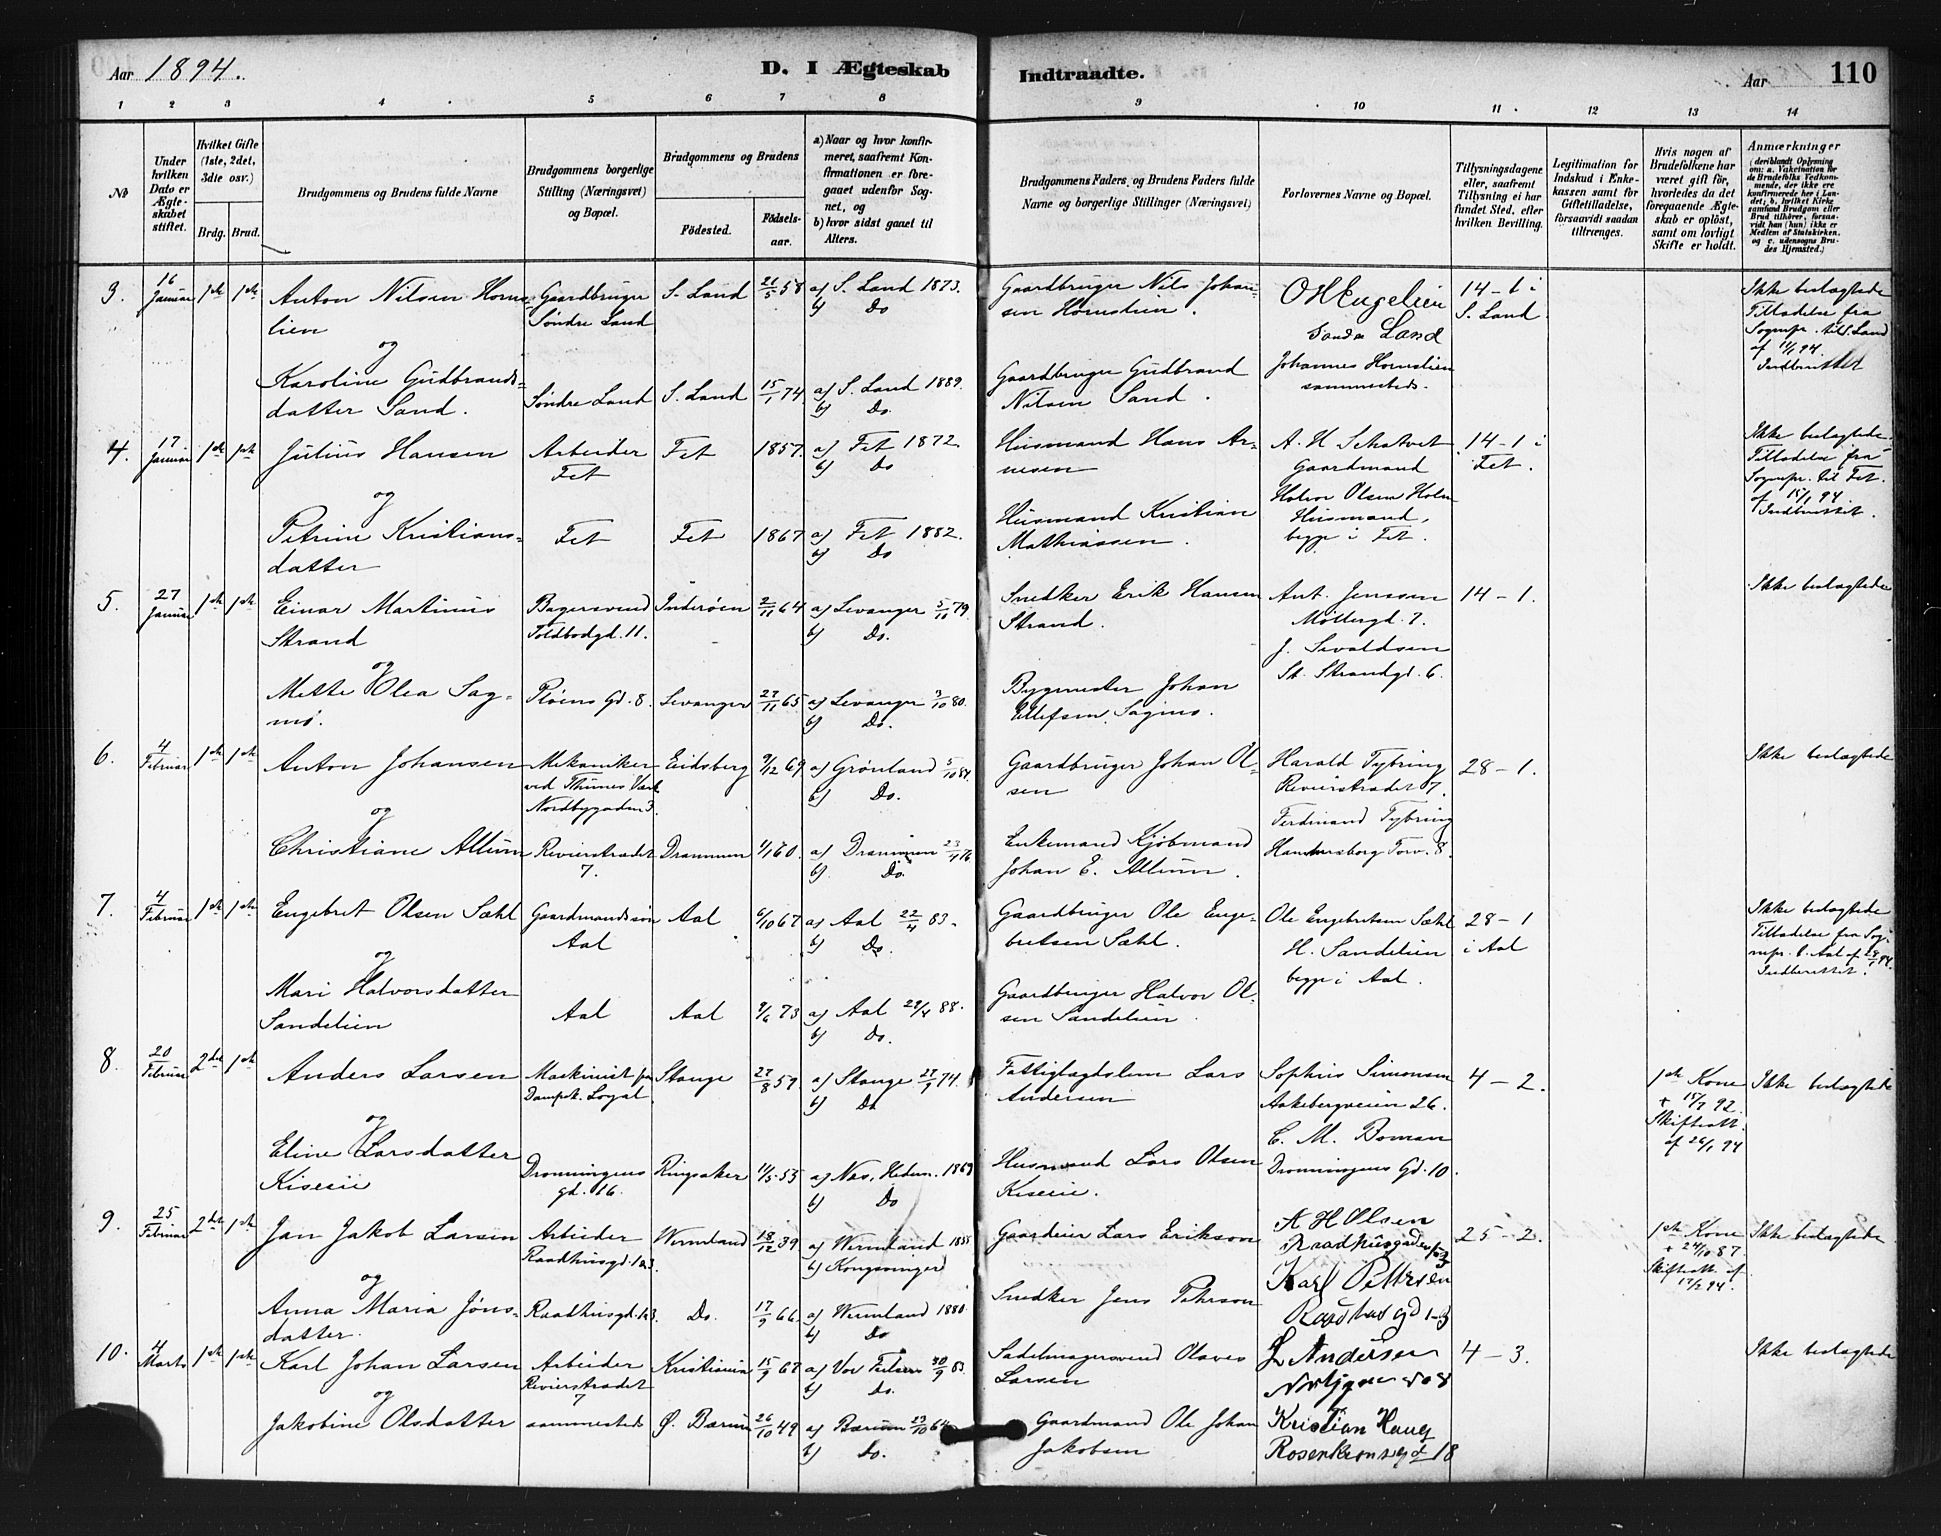 Aar 1894.
D. I Ægteskab Indtraadte.
Aar 110
1 2 3 4 5 6 7 8 9 10 11 12 13 14
No
Under hvilken Dato er Ægteskabet stiftet.
Hvilket Gifte (1ste, 2det, 3die osv.)
Brdg. Brud.
Brudgommens og Brudens fulde Navne
Brudgommens borgerlige Stilling (Næringsvei) og Bopæl.
Brudgommens og Brudens
Fødested. Fødselsaar.
a) Naar og hvor konfirmeret, saafremt Konfirmationen er foregaaet udenfor Sognet, og
b) hvor sidst gaaet til Alters.
Brudgommens Faders og Brudens Faders fulde Navne og borgerlige Stillinger (Næringsvei)
Forlovernes Navne og Bopæl.
Tillysningsdagene eller, saafremt Tillysning ei har fundet Sted, efter hvilken Bevilling.
Legitimation for Indskud i Enkekassen samt for Giftetilladelse, forsaavidt saadan tiltrænges.
Hvis nogen af Brudefolkene har været gift før, hvorledes da det foregaaende Ægteskab er opløst, samt om lovligt Skifte er holdt.
Anmærkninger
3. 16 Januar 1ste 1ste Anton Nilsen Hornslien Gaardbruger Søndre Land S. Land 21/5 58 a) S. Land 1873. b) Do Gaardbruger Nils Johansen Hornslien. O H Engelien Søndre Land 14-1 i S. Land Ikke beslægtede Tilladelse fra Sognepr. til S. Land af 11/1 94. Indberettet
og
Karoline Gudbrandsdatter Sand. Søndre Land S. Land 15/1 74 a) S. Land 1889. b) Do. Gaardbruger Gudbrand Nilsen Sand. Johannes Hornslien sammesteds.
4. 17 Januar 1ste 1ste Julius Hansen Arbeider Fet Fet 1857. a) Fet 1872. b) Do Husmand Hans Arnesen A. H. Schatvet Gaardmand 14-1 i Fet. Ikke beslægtede. Tilladelse fra Sognepr. til Fet. af 15/1 94. Indberettet.
og
Petrine Kristiansdatter Fet Fet 1867 a) Fet 1882. b) Do Husmand Kristian Mathiassen. Halvor Olsen Holm Husmand, begge i Fet.
5. 27 Januar 1ste 1ste Einar Martinus Strand Bagersvend Toldbodgd. 11. Inderøen 2/11 64 a) Levanger 5/10 79. b) Do. Snedker Erik Hansen Strand. Ant. Jenssen Møllergd. 7. 14-1. Ikke beslægtede
og
Mette Olea Sagmo. Pløens Gd. 8. Levanger 27/11 65 a) Levanger 3/10 80. b) Do. Bygmester Johan Ellefsen Sagmo. J. Sivaldsen St. Strandgd. 6.
6. 4 Februar 1ste 1ste Anton Johansen Mekaniker ved Thunes Værk Nordbygaden 3. Eidsberg 9/12 69 a) Grønland 5/10 84. b) Do. Gaardbruger Johan Olsen Harald Tybring Revierstrædet 7. 28-1. Ikke beslægtede
og
Christiane Allum Revierstrædet 7. Drammen 1/1 60. a) Drammen 23/4 76 b) Do. Enkemand Kjøbmand Johan E. Allum. Ferdinand Tybring Hammersborg Torv. 8.
7. 4 Februar 1ste 1ste Engebret Olsen Sæhl Gaardmandssøn Aal Aal 6/10 67 a) Aal 22/4 83. b) Do Gaardbruger Ole Engebretsen Sæhl. Ole Engebretsen Sæhl 28-1 i Aal Ikke beslægtede Tilladelse fra Sognepr. t. Aal af 28/1 94. Indberettet.
og
Mari Halvorsdatter Sandelien Aal Aal 9/6 73 a) Aal 29/4 88. b) Do. Gaardbruger Halvor Olsen Sandelien H. Sandelien begge i Aal.
8. 20 Februar 2det 1ste Anders Larsen Maskinist paa Dampsk. Loyal Stange 27/8 57. a) Stange 27/9 74. b) Do Fattiglagdslem Lars Andersen Sophus Simonsen Aakebergveien 26. 4-2. 1ste Kone + 15/7 92. Skifteatt. af 26/1 94 Ikke beslægtede
og
Eline Larsdatter Kiserie Dronningens gd. 16. Ringsaker 11/5 53 a) Næs, Hedem. 1869 b) Do Husmand Lars Olsen Kiserie. C. M. Boman Dronningens Gd. 10.
9. 25 Februar 2det 1ste Jan Jakob Larsen Arbeider Raadhusgd. 1a3. Wermland 18/12 39 a) Wermland 1855 b) Kongsvinger Gaardeier Lars Erikson A H Olsen Raadhusgaden 25-2. 1ste Kone + 24/10 87 Skifteatt. af 17/2 94. Ikke beslægtede
og
Anna Maria Jönsdatter. Raadhusgd. 1a3. Do. 17/9 66. a) Wermland 1880. b) Do Snedker Jens Pehrson Karl Pettersen Raadhusgd 1-3
10. 4 Marts 1ste 1ste Karl Johan Larsen Arbeider Revierstrædet 7 Kristiania 15/9 67 a) Vor Frelsers 30/9 83. b) Do. Sadelmagersvend Olaves Larsen L Andersen 4-3. Ikke beslægtede
og
Jakobine Olsdatter sammesteds Ø. Bærum 26/10 49 a) Bærum 23/10 64 b) Do. Gaardmand Ole Johan Jakobsen Kristian Haug Rosenkransgd 18